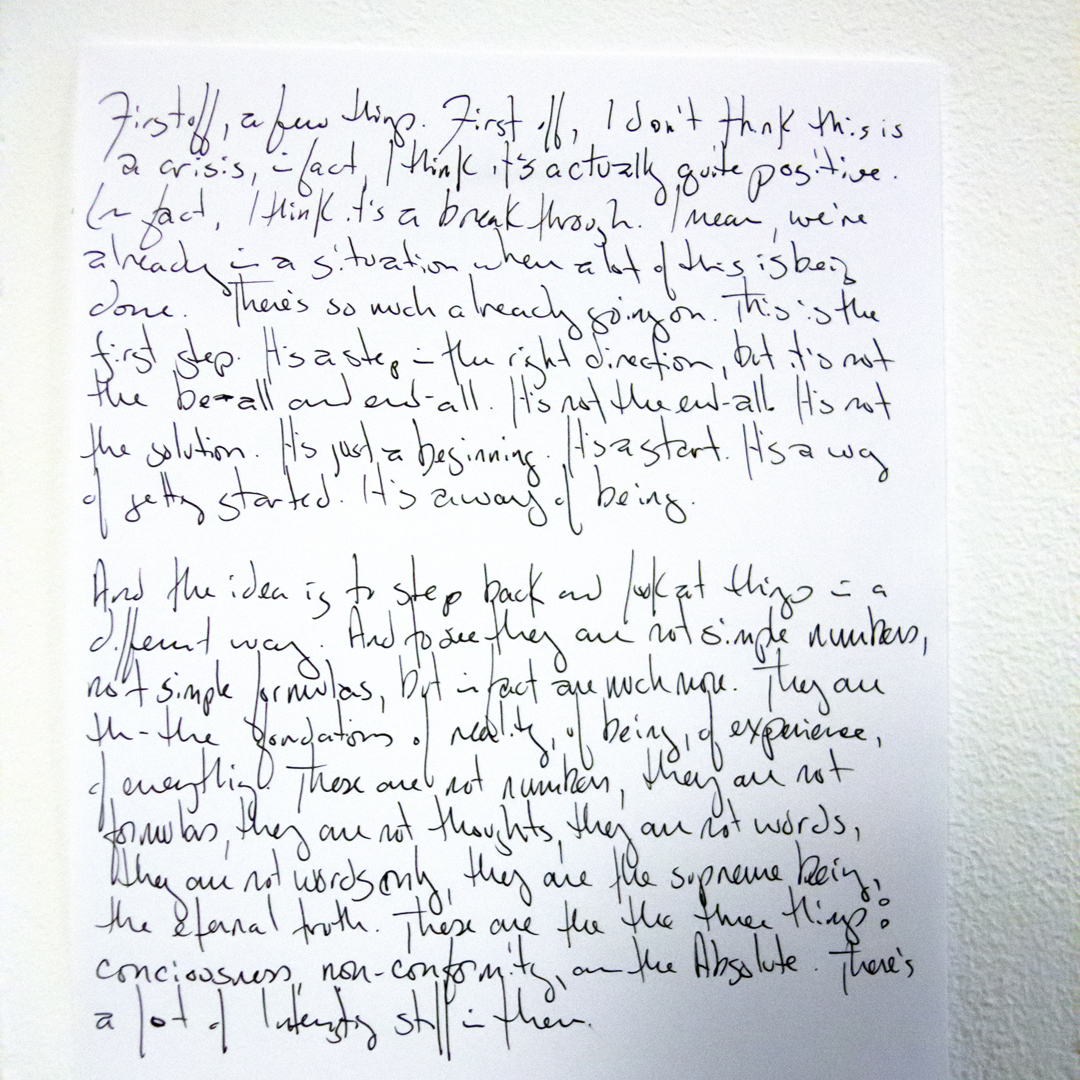 First off, a few things. First off, I don't think this is
a crisis, in fact, I think it's actually quite positive.
In fact, I think it's a breakthrough. I mean, we're
already in a situation when a lot of this is being
done. There's so much already going on. This is the
first step. It's a step in the right direction, but it's not
the be-all and end-all. It's not the end-all. It's not
the solution. It's just a beginning. It's a start. It's a way
of getting started. It's a way of being.
And the idea is to step back and look at things in a
different way. And to see they are not simple numbers,
not simple formulas, but in fact are much more. They are
th-the foundations of reality, of being, of experience,
of everything. These are not numbers, they are not
formulas, they are not thoughts, they are not words,
they are not words only, they are the supreme being,
the eternal truth. These are the the three things:
conciousness, non-conformity, an the Absolute. There's
a lot of interesting stuff in them.